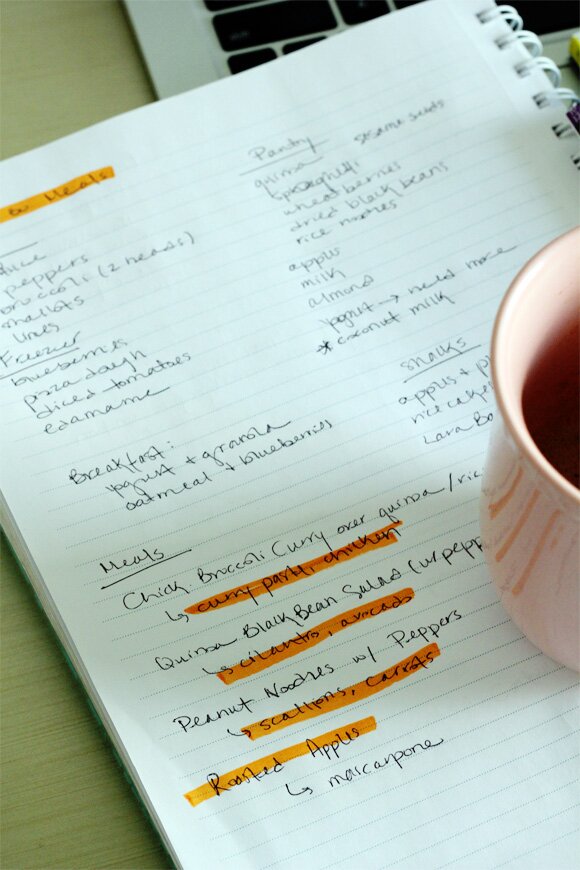 Meals
peppers
broccoli (2 heads)
shallots
limes
Freezer
blueberries
pizza dough
diced tomatoes
edamame
Pantry
sesame seeds
quinoa
spaghetti
wheat berries
dried black beans
rice noodles
apples
milk
almond
yogurt → need more
* coconut milk
snacks
apples +
rice cakes
Lara
Breakfast:
yogurt + granola
oatmeal + blueberries
Meals
Chick Broccoli Curry over quinoa/
↳ curry paste, chicken
Quinoa Black Bean Salad (w/
↳ cilantro, avocado
Peanut Noodles w/ Peppers
↳ scallions, carrots
Roasted Apples
↳ mascarpone